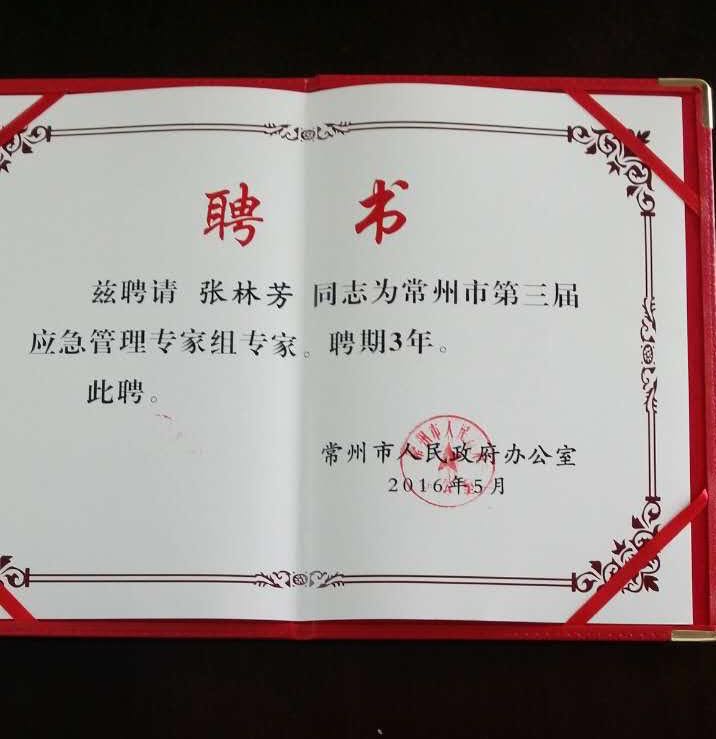 聘 书
兹聘请 张林芳 同志为常州市第三届
应急管理专家组专家。聘期3年。
此聘。
常州市人民政府办公室
2016年5月